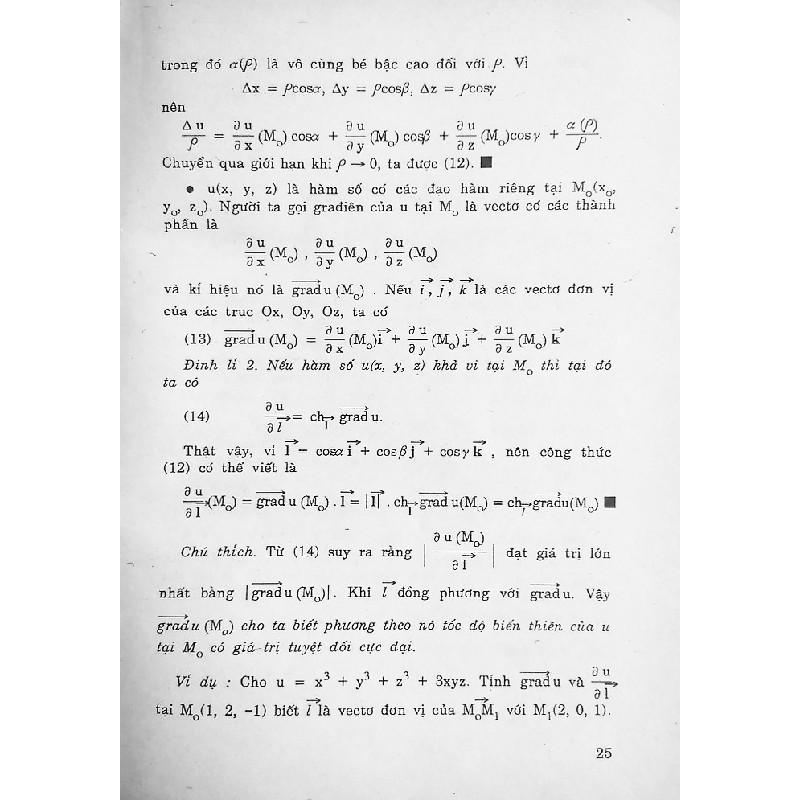 trong đó α(ρ) là vô cùng bé bậc cao đối với ρ. Vì
Δx = ρcosα, Δy = ρcosβ, Δz = ρcosγ
nên
Δu/ρ = ∂u/∂x (M₀) cosα + ∂u/∂y (M₀) cosβ + ∂u/∂z (M₀)cosγ + α(ρ)/ρ.
Chuyển qua giới hạn khi ρ → 0, ta được (12). ■
• u(x, y, z) là hàm số có các đạo hàm riêng tại M₀(x₀,
y₀, z₀). Người ta gọi gradiên của u tại M₀ là vectơ có các thành
phần là
∂u/∂x (M₀) , ∂u/∂y (M₀) , ∂u/∂z (M₀)
và kí hiệu nó là grad⃗ u (M₀) . Nếu i⃗ , j⃗ , k⃗ là các vectơ đơn vị
của các trục Ox, Oy, Oz, ta có
(13) grad⃗ u (M₀) = ∂u/∂x (M₀)i⃗ + ∂u/∂y (M₀) j⃗ + ∂u/∂z (M₀) k⃗
Định lí 2. Nếu hàm số u(x, y, z) khả vi tại M₀ thì tại đó
ta có
(14) ∂u/∂l⃗ = ch_l⃗ grad⃗ u.
Thật vậy, vì l⃗ = cosα i⃗ + cosβ j⃗ + cosγ k⃗ , nên công thức
(12) có thể viết là
∂u/∂l⃗ (M₀) = grad⃗ u (M₀) . l⃗ = |l⃗| . ch_l⃗ grad⃗ u(M₀) = ch_l⃗ grad⃗ u(M₀) ■
Chú thích. Từ (14) suy ra rằng | ∂u (M₀)/∂l⃗ | đạt giá trị lớn
nhất bằng |grad⃗ u (M₀)|. Khi l⃗ đồng phương với grad⃗ u. Vậy
grad⃗ u (M₀) cho ta biết phương theo nó tốc độ biến thiên của u
tại M₀ có giá trị tuyệt đối cực đại.
Ví dụ : Cho u = x³ + y³ + z³ + 3xyz. Tính grad⃗ u và ∂u/∂l⃗
tại M₀(1, 2, -1) biết l⃗ là vectơ đơn vị của M₀M₁⃗ với M₁(2, 0, 1).
25